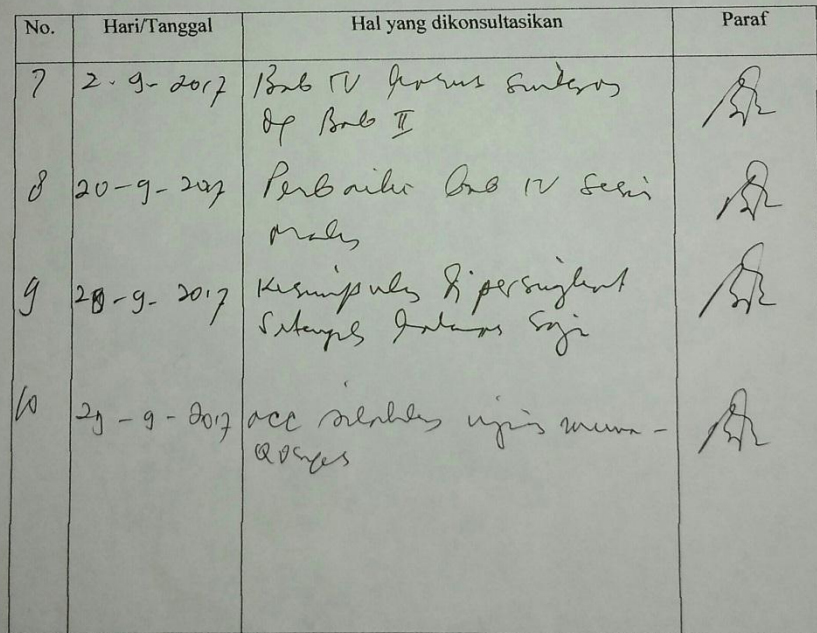 No. Hari/Tanggal Hal yang dikonsultasikan Paraf
7 2-9-2017 Bab IV harus sinkron
dg Bab II
8 20-9-2017 Perbaiki bab IV sesuai
9 28-9-2017 Kesimpulan dipersingkat
setengah halaman saja
10 29-9-2017 acc silahkan ujian muna-
qosyah